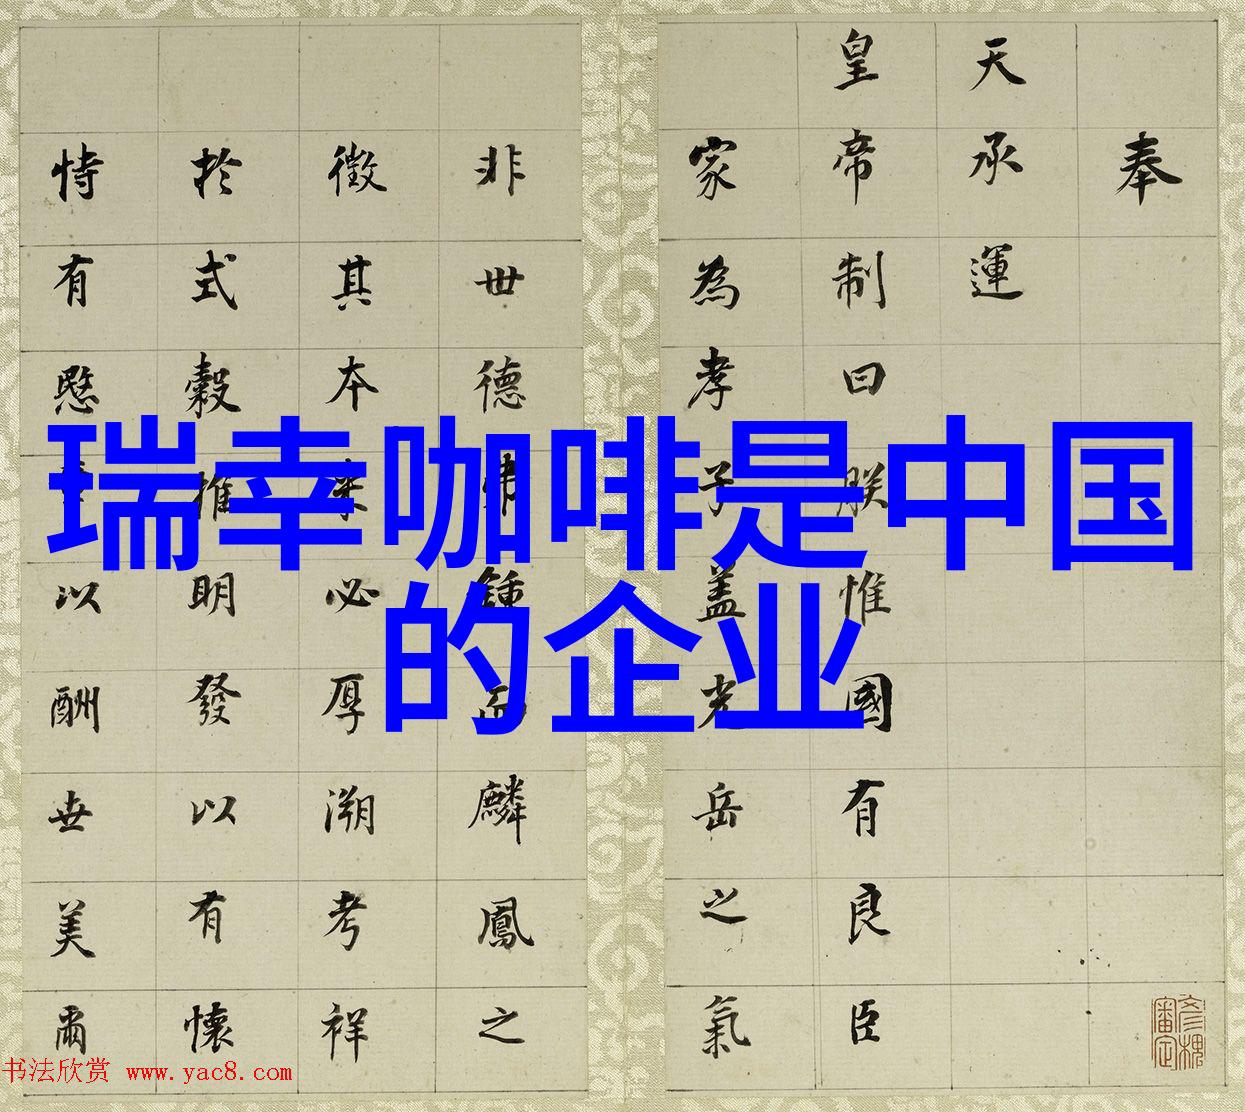 瑞幸咖啡是中国
的企业
奉
天承運
皇帝制曰朕惟國有良臣
家為孝子蓋光岳之氣
非世德鍾而麟鳳之
徵其本必厚溯考祥
於式穀推明發以有懷
恃有愍以酬世美爾
彥槐審定
书法欣赏 www.yac8.com